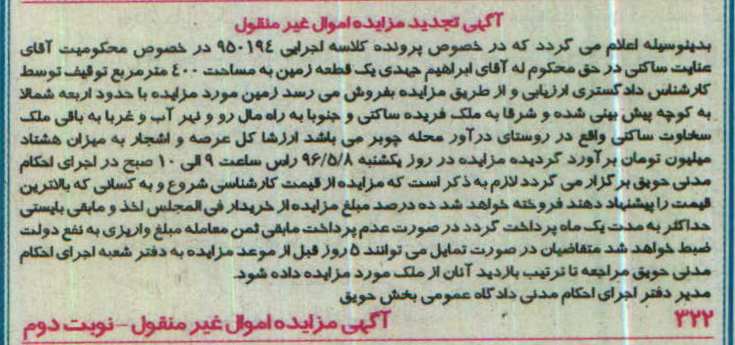 آگهی تجدید مزایده اموال غیر منقول
بدینوسیله اعلام می گردد که در خصوص پرونده کلاسه اجرایی ۹۵۰۱۹٤ در خصوص محکومیت آقای
عنایت ساکتی در حق محکوم له آقای ابراهیم جهدی یک قطعه زمین به مساحت ٤۰۰ متر مربع توقیف توسط
کارشناس دادگستری ارزیابی و از طریق مزایده بفروش می رسد زمین مورد مزایده با حدود اربعه شمالا
به کوچه پیش بینی شده و شرقا به ملک فریده ساکتی و جنوبا به راه مال رو و نهر آب و غربا به باقی ملک
سخاوت ساکتی واقع در روستای درآور محله چوبر می باشد ارزشا کل عرصه و اشجار به میزان هشتاد
میلیون تومان برآورد گردیده مزایده در روز یکشنبه ۹۶/۵/۸ راس ساعت ۹ الی ۱۰ صبح در اجرای احکام
مدنی حویق برگزار می گردد لازم به ذکر است که مزایده از قیمت کارشناسی شروع و به کسانی که بالاترین
قیمت را پیشنهاد دهند فروخته خواهد شد ده درصد مبلغ مزایده از خریدار فی المجلس اخذ و مابقی بایستی
حداکثر به مدت یک ماه پرداخت گردد در صورت عدم پرداخت مابقی ثمن معامله مبلغ واریزی به نفع دولت
ضبط خواهد شد متقاضیان در صورت تمایل می توانند ۵ روز قبل از موعد مزایده به دفتر شعبه اجرای احکام
مدنی حویق مراجعه تا ترتیب بازدید آنان از ملک مورد مزایده داده شود.
مدیر دفتر اجرای احکام مدنی دادگاه عمومی بخش حویق
۳۲۲ آگهی مزایده اموال غیر منقول - نوبت دوم